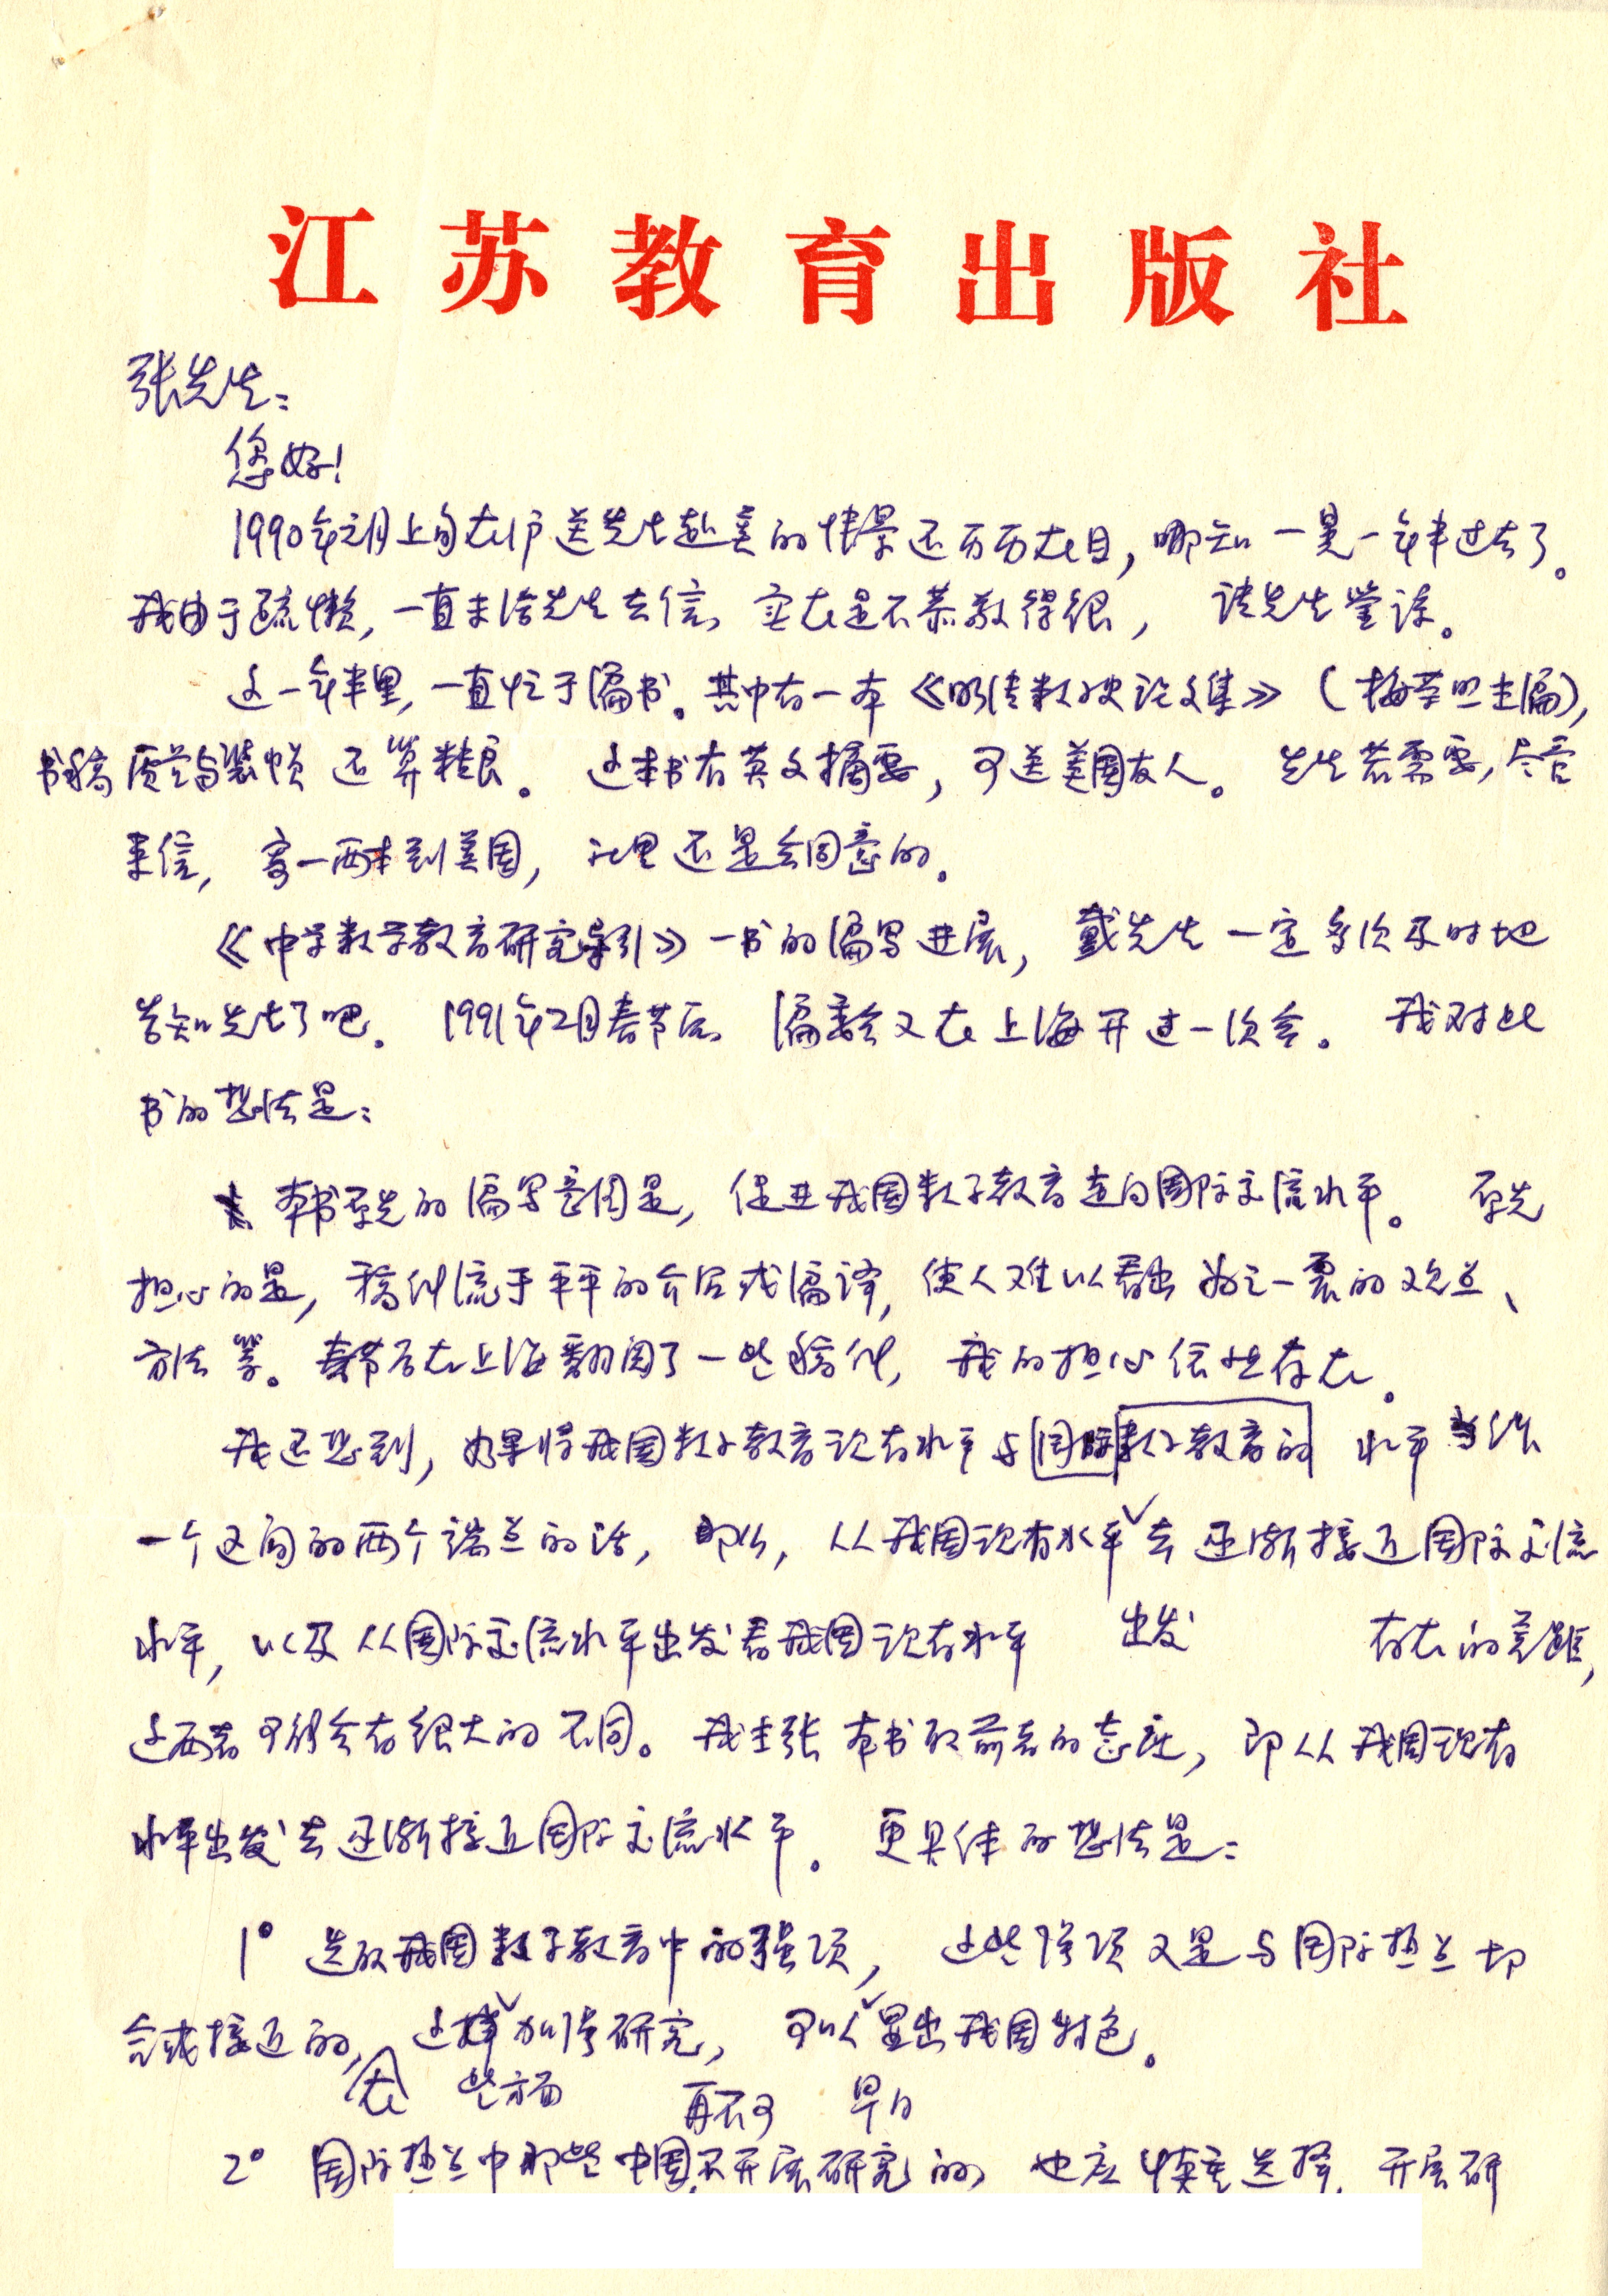 江苏教育出版社
张先生：
您好！
1990年元月上旬在沪送先生赴美的情景还历历在目，哪知一晃一年半过去了。
我由于疏懒，一直未给先生去信，实在是不恭敬得很，请先生鉴谅。
这一年半里，一直忙于编书。其中有一本《明清数学史论文集》（梅荣照主编），
书稿质量与装帧还算精良。这本书有英文摘要，可送美国友人。先生若需要，尽管
来信，寄一两本到美国，社里还是会同意的。
《中学数学教育研究导引》一书的编写进展，戴先生一定多次及时地
告知先生了吧。1991年2月春节后，编委会又在上海开过一次会。我对此
书的想法是：
本书原先的编写意图是，促进我国数学教育走向国际交流水平。原先
担心的是，稿件流于平平的介绍或编译，使人难以看出为之一震的观点、
方法等。春节后在上海翻阅了一些稿件，我的担心依然存在。
我还想到，如果将我国数学教育现有水平与国际数学教育的水平当作
一个区间的两个端点的话，那么，从我国现有水平去逐渐接近国际交流
水平，以及从国际交流水平出发看我国现有水平 出发 存在的差距，
这两者可能会有很大的不同。我主张本书取前者的态度，即从我国现有
水平出发去逐渐接近国际交流水平。更具体的想法是：
1° 选取我国数学教育中的强项，这些强项又是与国际热点切
合或接近的，这样加情研究，可以显出我国特色。
在 些方面 再不可 早日
2° 国际热点中那些中国不开展研究的，也应慎重选择，开展研